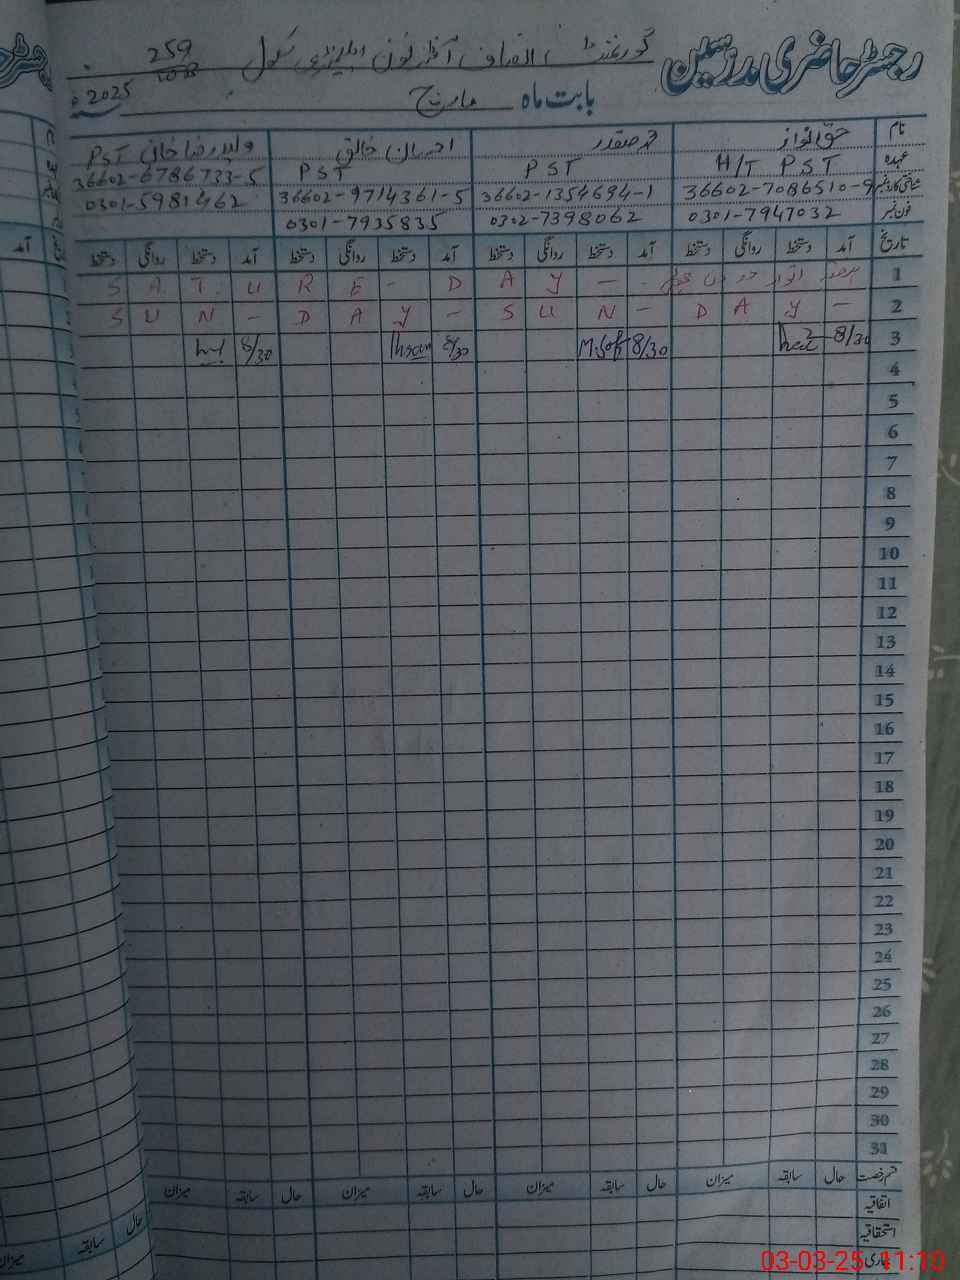 رجسٹر حاضری مدرسین گورنمنٹ انصاف آفٹر نون ایلیمنٹری سکول 259
بابت ماہ مارچ 2025ء
نام حق النواز محمد صفدر احسان خالق ولید رضا خان PST
عہدہ H/T PST PST PST 36602-6786733-5
شناختی کارڈ نمبر 36602-7086510-9 36602-1354694-1 36602-9714361-5 0301-5981462
فون نمبر 0301-7947032 0302-7398062 0301-7935835
تاریخ آمد دستخط روانگی دستخط آمد دستخط روانگی دستخط آمد دستخط روانگی دستخط آمد دستخط روانگی دستخط
1 S A T U R E - D A Y - -
2 S U N - D A Y - S U N - D A Y -
3 8/30 8/30 M.Saf 8/30 Ihsan 8/30
4
5
6
7
8
9
10
11
12
13
14
15
16
17
18
19
20
21
22
23
24
25
26
27
28
29
30
31
قسم رخصت حال سابقہ میزان حال سابقہ میزان حال سابقہ میزان حال سابقہ میزان
اتفاقیہ
استحقاقیہ
بیماری
آمد
حال سابقہ میزان
03-03-25 11:10